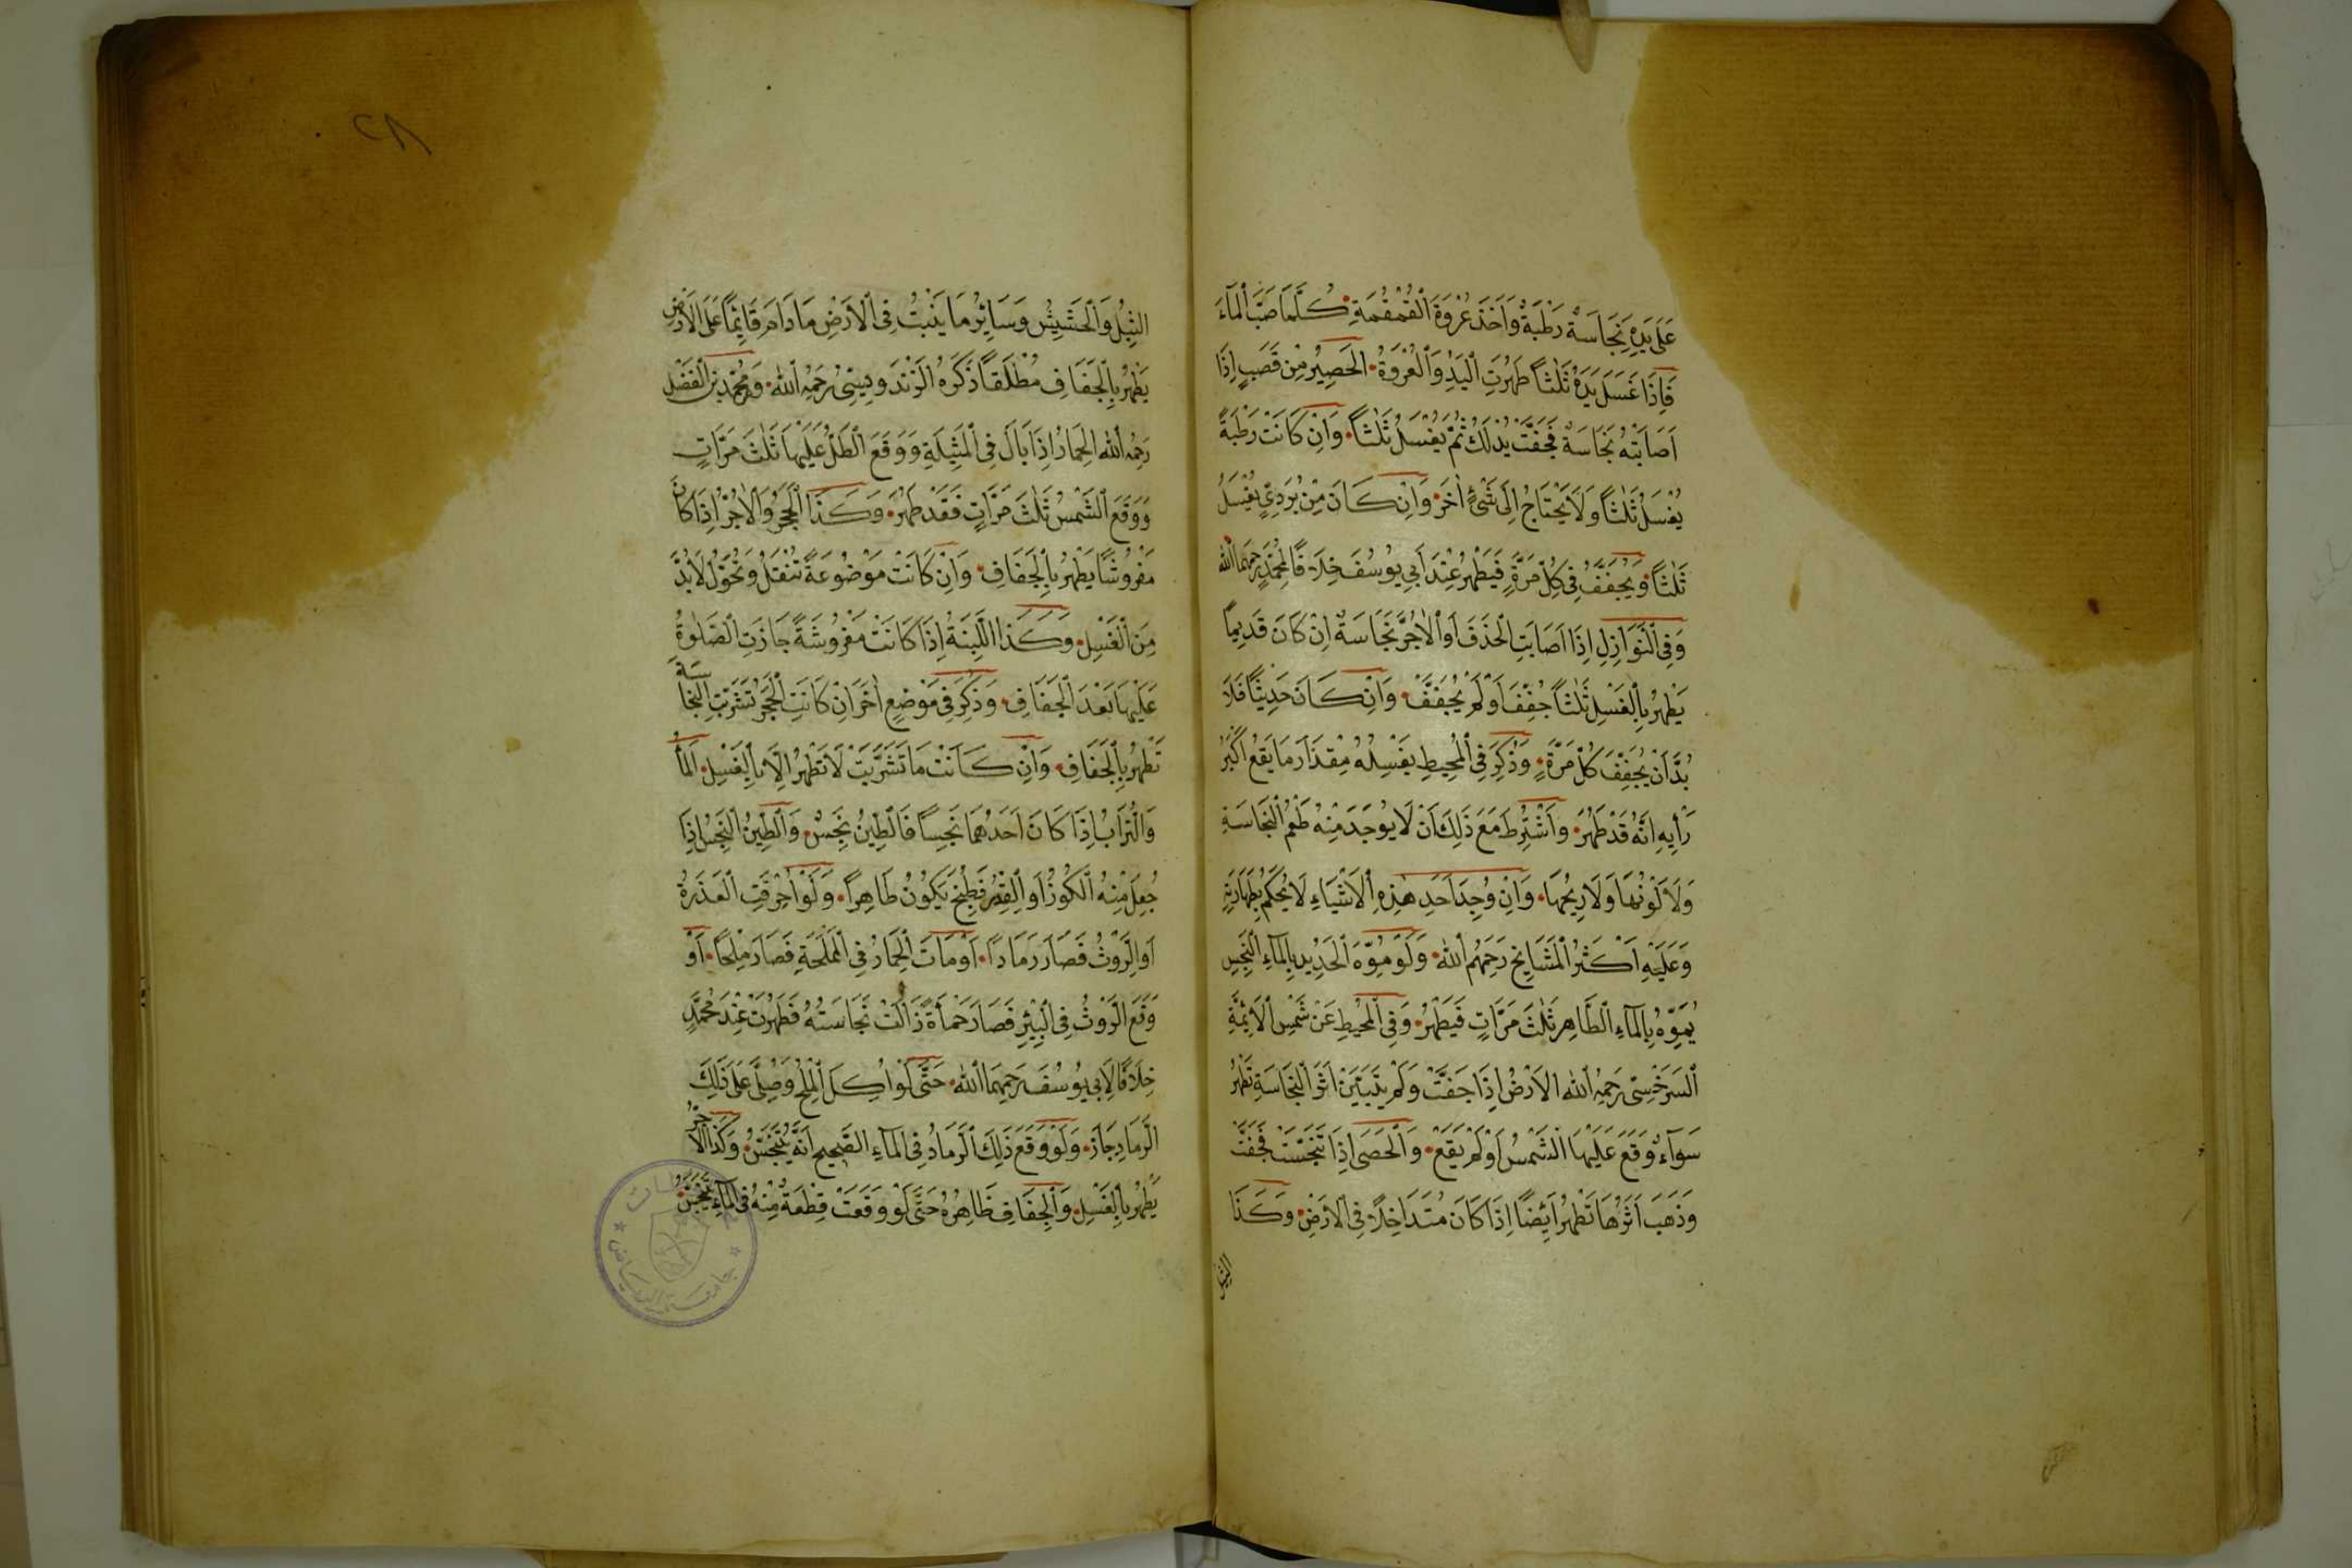 عَلَى يَدِهِ نَجَاسَةٌ رَطْبَةٌ وَاَخَذَ عُرْوَةَ الْقُمْقُمَةِ كُلَّمَا صَبَّ الْمَآءَ
فَاِذَا غَسَلَ يَدَهُ ثَلٰثًا طَهُرَتِ الْيَدُ وَالْعُرْوَةُ الْحَصِيرُ مِنْ قَصَبٍ اِذَا
اَصَابَتْهُ نَجَاسَةٌ فَجَفَّتْ يُدْلَكُ ثُمَّ يُغْسَلُ ثَلٰثًا وَاِنْ كَانَتْ رَطْبَةً
يُغْسَلُ ثَلٰثًا وَلَا يَحْتَاجُ اِلَى شَىْءٍ اٰخَرَ وَاِنْ كَانَ مِنْ بُرَدِىٍّ يُغْسَلُ
ثَلٰثًا وَيُجَفَّفُ فِى كُلِّ مَرَّةٍ فَيَطْهُرُ عِنْدَ اَبِى يُوسُفَ خِلَافًا لِمُحَمَّدٍ رَحِمَهُمَا اللّٰه
وَفِى النَّوَازِلِ اِذَا اَصَابَتِ الْخَذَفَ اَوِ الْاٰجُرَّ نَجَاسَةٌ اِنْ كَانَ قَدِيمًا
يَطْهُرُ بِالْغَسْلِ ثَلٰثًا جُفِّفَ اَوْ لَمْ يُجَفَّفْ وَاِنْ كَانَ حَدِيثًا فَلَا
بُدَّ اَنْ يُجَفِّفَ كُلَّ مَرَّةٍ وَذُكِرَ فِى الْمُحِيطِ يَغْسِلُهُ مِقْدَارَ مَا يَقَعُ اَكْبَرُ
رَأْيِهِ اَنَّهُ قَدْ طَهُرَ وَاشْتُرِطَ مَعَ ذَلِكَ اَنْ لَا يُوجَدَ مِنْهُ طَعْمُ النَّجَاسَةِ
وَلَا لَوْنُهَا وَلَا رِيحُهَا وَاِنْ وُجِدَ اَحَدُ هٰذِهِ الْاَشْيَاءِ لَا يُحْكَمُ بِطَهَارَتِهِ
وَعَلَيْهِ اَكْثَرُ الْمَشَايِخِ رَحِمَهُمُ اللّٰه وَلَوْ مُوِّهَ الْحَدِيدُ بِالْمَآءِ النَّجِسِ
يُمَوَّهُ بِالْمَآءِ الطَّاهِرِ ثَلٰثَ مَرَّاتٍ فَيَطْهُرُ وَفِى الْمُحِيطِ عَنْ شَمْسِ الْاَئِمَّةِ
السَّرَخْسِىِّ رَحِمَهُ اللّٰه الْاَرْضُ اِذَا جَفَّتْ وَلَمْ يَتَبَيَّنْ اَثَرُ النَّجَاسَةِ تَطْهُرُ
سَوَآءٌ وَقَعَ عَلَيْهَا الشَّمْسُ اَوْ لَمْ يَقَعْ وَالْحَصَى اِذَا تَنَجَّسَتْ فَجَفَّتْ
وَذَهَبَ اَثَرُهَا تَطْهُرُ اَيْضًا اِذَا كَانَ مُتَدَاخِلًا فِى الْاَرْضِ وَكَذَا
الثيل
٢٨
الثِّيلُ وَالْحَشِيشُ وَسَائِرُ مَا يَنْبُتُ فِى الْاَرْضِ مَا دَامَ قَائِمًا عَلَى الْاَرْضِ
يَطْهُرُ بِالْجَفَافِ مُطْلَقًا ذَكَرَهُ الزَّنْدَوِيسِتِىُّ رَحِمَهُ اللّٰه وَمُحَمَّدُ بْنُ الْفَضْلِ
رَحِمَهُ اللّٰه الْحِمَارُ اِذَا بَالَ فِى الْمَثِيلَةِ وَوَقَعَ الظِّلُّ عَلَيْهَا ثَلٰثَ مَرَّاتٍ
وَوَقَعَ الشَّمْسُ ثَلٰثَ مَرَّاتٍ فَقَدْ طَهُرَ وَكَذَا الْحَجَرُ وَالْاٰجُرُّ اِذَا كَانَ
مَفْرُوشًا يَطْهُرُ بِالْجَفَافِ وَاِنْ كَانَتْ مَوْضُوعَةً تُنْقَلُ وَتُحَوَّلُ لَا بُدَّ
مِنَ الْغَسْلِ وَكَذَا اللَّبِنَةُ اِذَا كَانَتْ مَفْرُوشَةً جَازَتِ الصَّلٰوةُ
عَلَيْهَا بَعْدَ الْجَفَافِ وَذُكِرَ فِى مَوْضِعٍ اٰخَرَ اِنْ كَانَتِ الْحَجَرُ تَشَرَّبَتِ النَّجَاسَةَ
تَطْهُرُ بِالْجَفَافِ وَاِنْ كَانَتْ مَا تَشَرَّبَتْ لَا تَطْهُرُ اِلَّا بِالْغَسْلِ اَلْمَآءُ
وَالتُّرَابُ اِذَا كَانَ اَحَدُهُمَا نَجِسًا فَالطِّينُ نَجِسٌ وَالطِّينُ النَّجِسُ اِذَا
جُعِلَ مِنْهُ الْكُوزُ اَوِ الْقِدْرُ فَطُبِخَ يَكُونُ طَاهِرًا وَلَوْ اُحْرِقَتِ الْعَذِرَةُ
اَوِ الرَّوْثُ فَصَارَ رَمَادًا اَوْ مَاتَ الْحِمَارُ فِى الْمَمْلَحَةِ فَصَارَ مِلْحًا اَوْ
وَقَعَ الرَّوْثُ فِى الْبِئْرِ فَصَارَ حَمْأَةً زَالَتْ نَجَاسَتُهُ فَطَهُرَتْ عِنْدَ مُحَمَّدٍ
خِلَافًا لِاَبِى يُوسُفَ رَحِمَهُمَا اللّٰه حَتَّى لَوْ اُكِلَ الْمِلْحُ وَصُلِّىَ عَلَى ذَلِكَ
الرَّمَادِ جَازَ وَلَوْ وَقَعَ ذَلِكَ الرَّمَادُ فِى الْمَآءِ الصَّحِيحُ اَنَّهُ يَتَنَجَّسُ وَكَذَا الْاٰجُرُّ
يَطْهُرُ بِالْغَسْلِ وَالْجَفَافِ ظَاهِرُهُ حَتَّى لَوْ وَقَعَتْ قِطْعَةٌ مِنْهُ فِى الْمَآءِ
جامعة الرياض